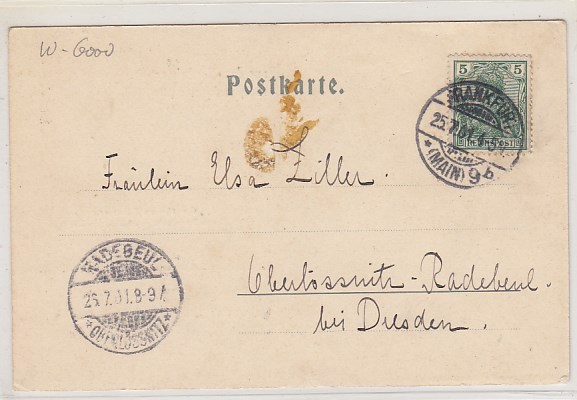 W-6000
Postkarte.
5 5
REICHSPOST
FRANKFURT
25.7.01.
* (MAIN) 9 b
Fräulein Elsa Ziller.
Oberlössnitz-Radebeul.
bei Dresden.
RADEBEUL
26.7.01.8-9V.
*OBERLÖSSNITZ*